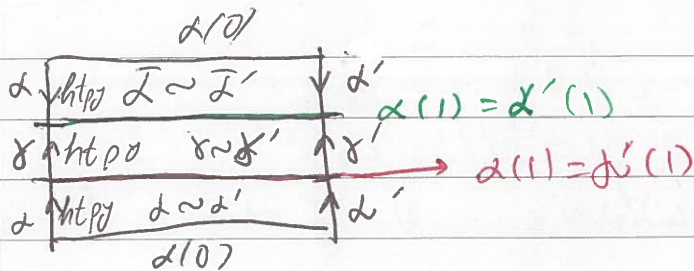 α(0)
α htpy ᾱ ~ ᾱ' α'
α(1) = α'(1)
γ htpy γ ~ γ' γ'
α(1) = α'(1)
α htpy α ~ α' α'
α(0)